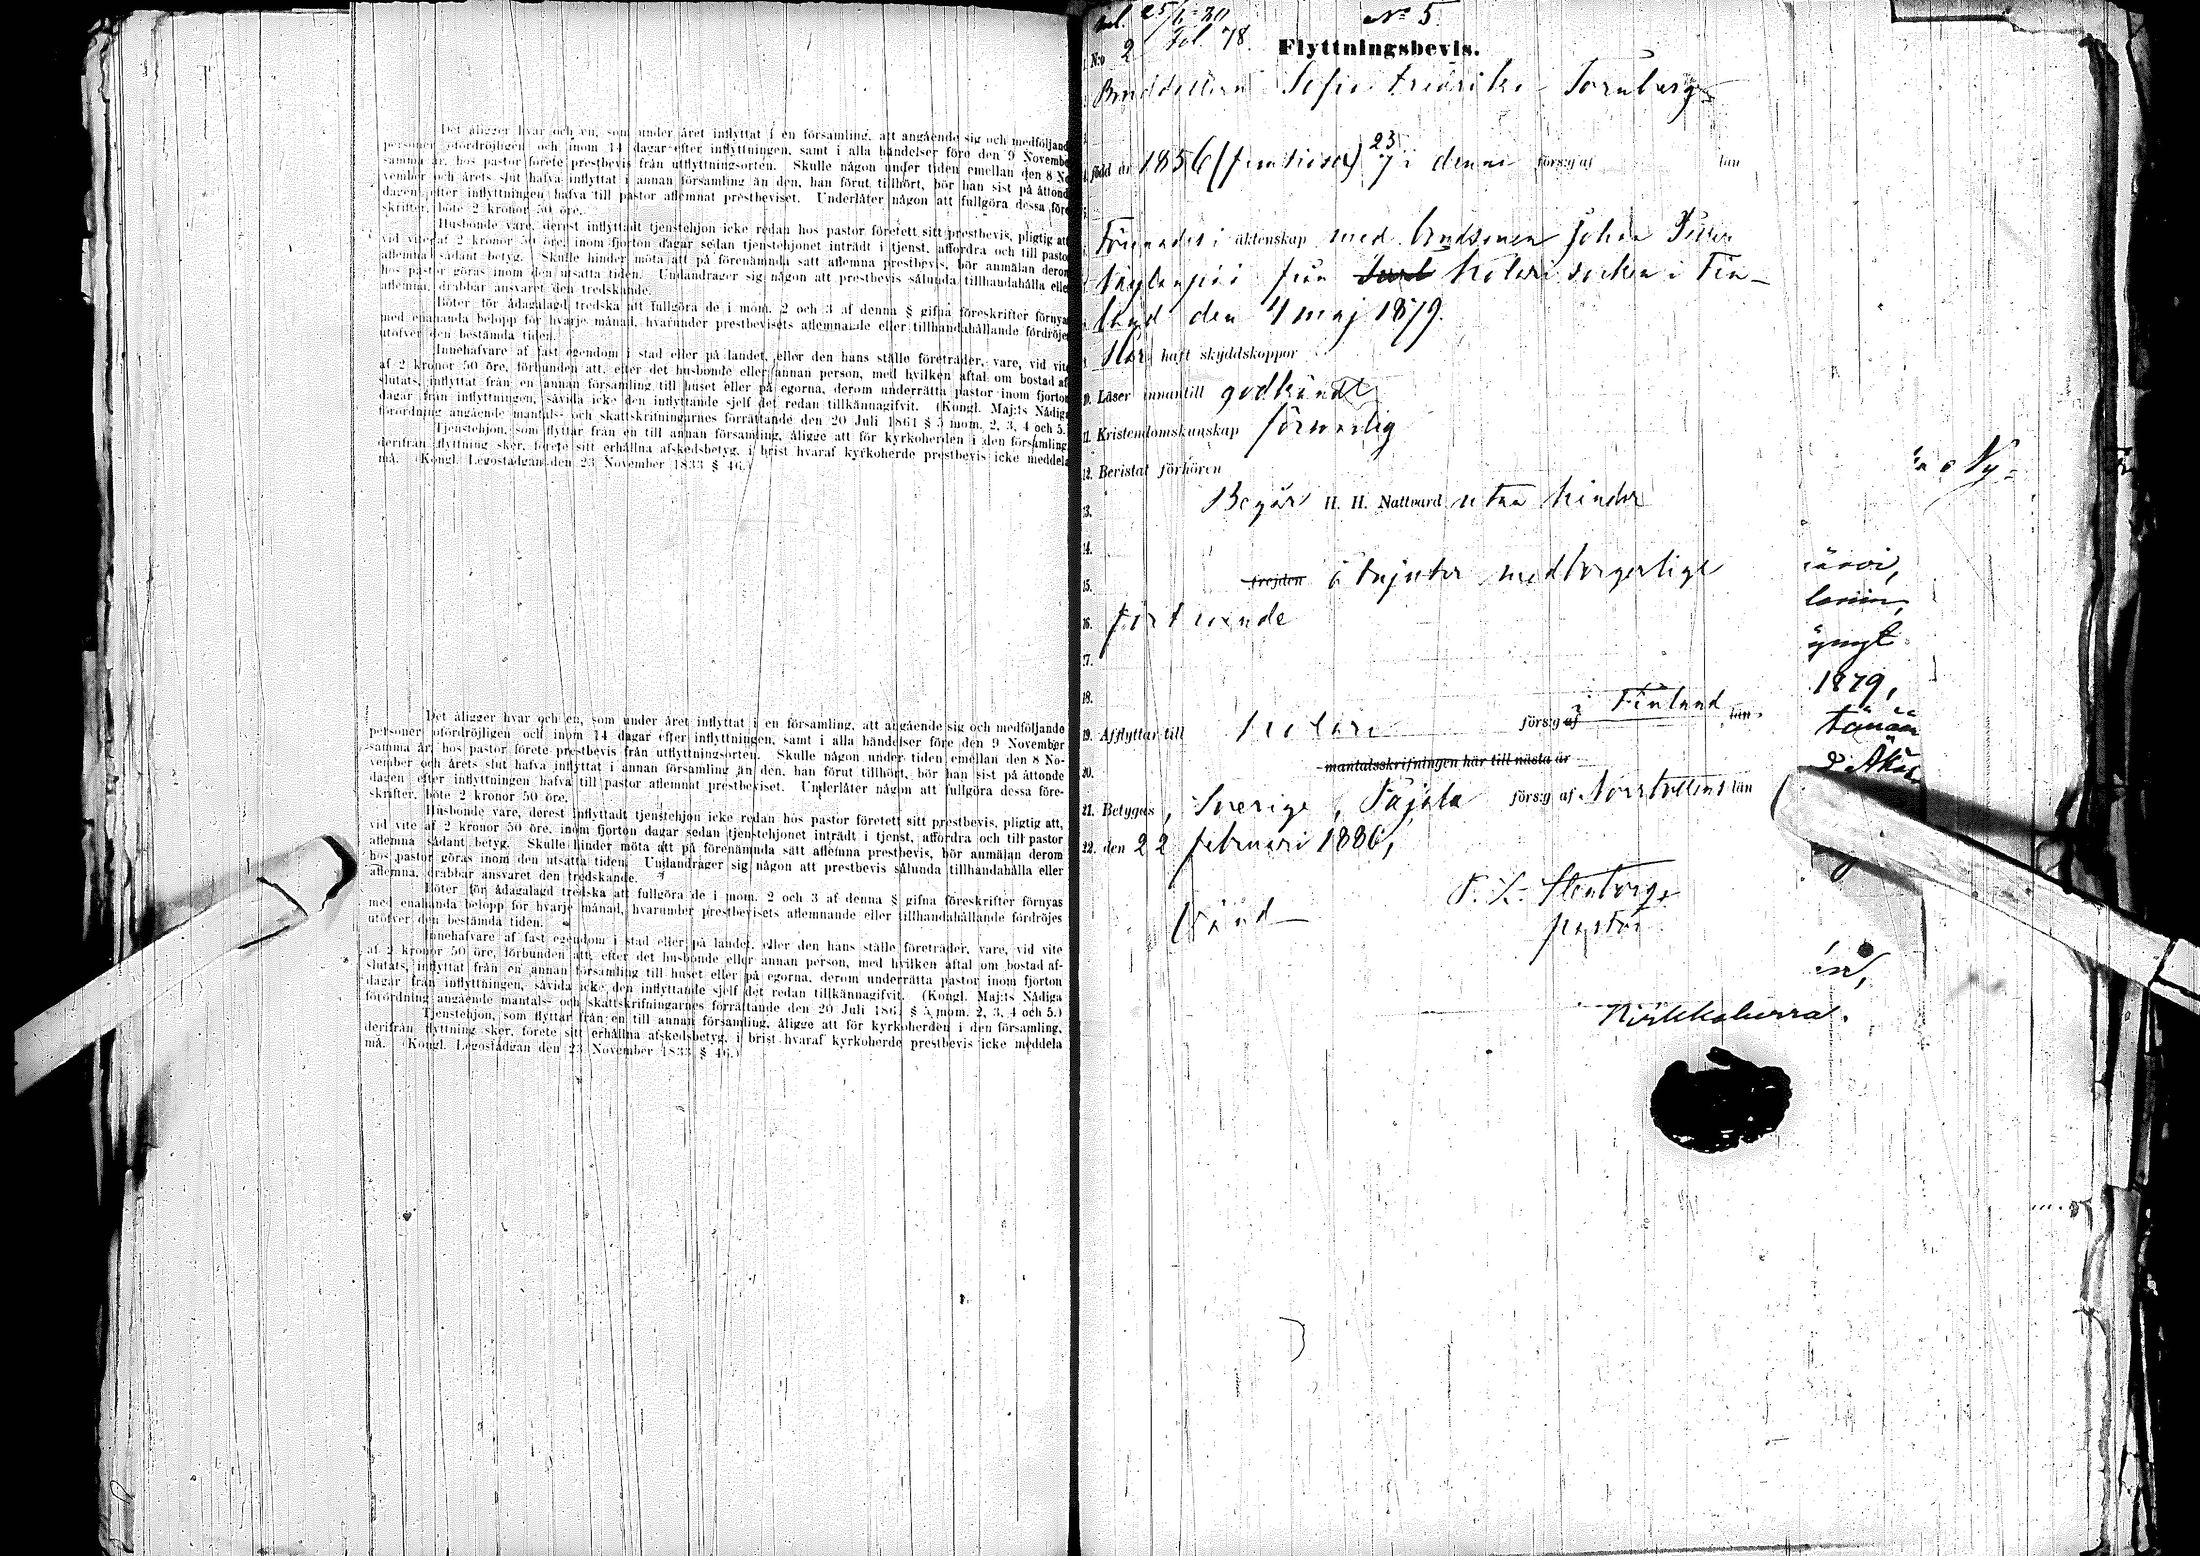 Det åligger hvar och en, som under året inflyttat i en församling, att angående sig och medföljande
personer ofördröjligen och inom 14 dagar efter inflyttningen, samt i alla händelser före den 9 Novembe
samma år, hos pastor förete prestbevis från utflyttningsorten. Skulle någon under tiden emellan den 8 No
vember och årets slut hafva inflyttat i annan församling än den, han förut tillhört, bör han sist på åttond
dagen efter inflyttningen hafva till pastor aflemnat prestbeviset. Underlåter någon att fullgöra dessa före
skrifter, böte 2 kronor 50 öre.
Husbonde vare, derest inflyttadt tjenstehjon icke redan hos pastor företett sitt prestbevis, pligtig att
vid vite af 2 kronor 50 öre, inom fjorton dagar sedan tjenstehjonet inträdt i tjenst, affordra och till pasto
aflemna sådant betyg. Skulle hinder möta att på förenämnda sätt aflemna prestbevis, bör anmälan derom
hos pastor göras inom den utsatta tiden. Undandrager sig någon att prestbevis sålunda tillhandahålla elle
aflemna, drabbar ansvaret den tredskande.
Böter för ådagalagd tredska att fullgöra de i mom. 2 och 3 af denna § gifna föreskrifter förnyas
med enahanda belopp för hvarje månad, hvarunder prestbevisets aflemnande eller tillhandahållande fördröjes
utöfver den bestämda tiden.
Innehafvare af fast egendom i stad eller på landet, eller den hans ställe företräder, vare, vid vite
af 2 kronor 50 öre, förbunden att, efter det husbonde eller annan person, med hvilken aftal om bostad af
slutats, inflyttat från en annan församling till huset eller på egorna, derom underrätta pastor inom fjorton
dagar från inflyttningen, såvida icke den inflyttande sjelf det redan tillkännagifvit. (Kongl. Maj:ts Nådiga
förordning angående mantals- och skattskrifningarnes förrättande den 20 Juli 1861 § 5 mom. 2, 3, 4 och 5.
Tjenstehjon, som flyttar från en till annan församling, åligge att för kyrkoherden i den församling
derifrån flyttning sker, förete sitt erhållna afskedsbetyg, i brist hvaraf kyrkoherde prestbevis icke meddela
må. (Kongl. Legostadgan den 23 November 1833 § 46.)
Det åligger hvar och en, som under året inflyttat i en församling, att angående sig och medföljande
personer ofördröjligen och inom 14 dagar efter inflyttningen, samt i alla händelser före den 9 November
samma år, hos pastor förete prestbevis från utflyttningsorten. Skulle någon under tiden emellan den 8 No-
vember och årets slut hafva inflyttat i annan församling än den, han förut tillhört, bör han sist på åttonde
dagen efter inflyttningen hafva till pastor aflemnat prestbeviset. Underlåter någon att fullgöra dessa före-
skrifter, böte 2 kronor 50 öre.
Husbonde vare, derest inflyttadt tjenstehjon icke redan hos pastor företett sitt prestbevis, pligtig att,
vid vite af 2 kronor 50 öre, inom fjorton dagar sedan tjenstehjonet inträdt i tjenst, affordra och till pastor
aflemna sådant betyg. Skulle hinder möta att på förenämnda sätt aflemna prestbevis, bör anmälan derom
hos pastor göras inom den utsatta tiden. Undandrager sig någon att prestbevis sålunda tillhandahålla eller
aflemna, drabbar ansvaret den tredskande.
Böter för ådagalagd tredska att fullgöra de i mom. 2 och 3 af denna § gifna föreskrifter förnyas
med enahanda belopp för hvarje månad, hvarunder prestbevisets aflemnande eller tillhandahållande fördröjes
utöfver den bestämda tiden.
Innehafvare af fast egendom i stad eller på landet, eller den hans ställe företräder, vare, vid vite
af 2 kronor 50 öre, förbunden att, efter det husbonde eller annan person, med hvilken aftal om bostad af-
slutats, inflyttat från en annan församling till huset eller på egorna, derom underrätta pastor inom fjorton
dagar från inflyttningen, såvida icke den inflyttande sjelf det redan tillkännagifvit. (Kongl. Maj:ts Nådiga
förordning angående mantals- och skattskrifningarnes förrättande den 20 Juli 1861 § 5 mom. 2, 3, 4 och 5.)
Tjenstehjon, som flyttar från en till annan församling, åligge att för kyrkoherden i den församling,
derifrån flyttning sker, förete sitt erhållna afskedsbetyg, i brist hvaraf kyrkoherde prestbevis icke meddela
må. (Kongl. Legostadgan den 23 November 1833 § 46.)
No 5
Fol. 78
N:o 2
Flyttningsbevis.
Sofia Fredrika Tornberg
född år 1856 (femtiosex) 23/7 i denna förs:g af län
Förenades i äktenskap med Johan
från Kolari socken i Fin-
land den 4 maj 1879.
Har haft skyddskoppor
Läser innantill godkändt
11. Kristendomskunskap försvarlig
12. Bevistat förhören
13. Begår H. H. Nattvard utan hinder
14.
15. frejden åtnjuter medborgerligt
16. förtroende
17.
18.
19. Afflyttar till Kolari förs:g af i Finland län
20. mantalsskrifningen här till nästa år
21. Betygas, Sverige, Pajala förs:g af Norrbottens län
22. den 22 februari 1886,
Vänd
pastor
1879,